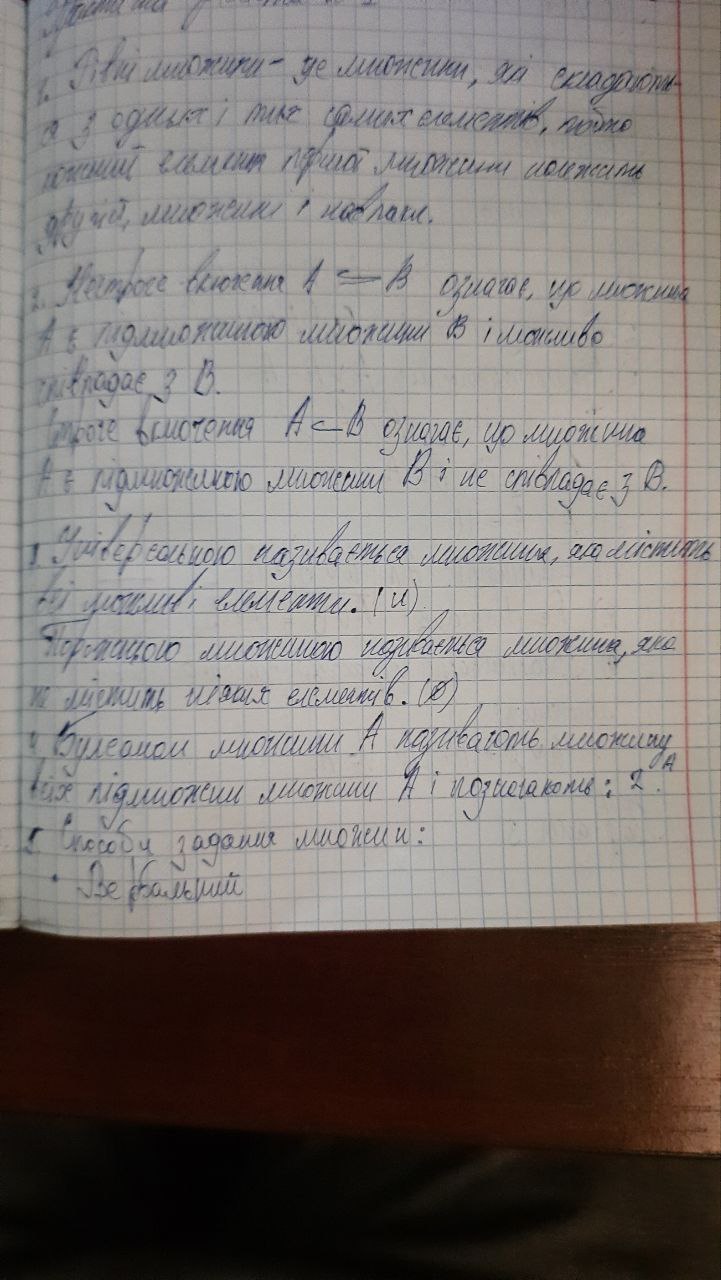 1. Рівні множини - це множини, які складають-
ся з одних і тих самих елементів, тобто
кожний елемент першої множини належить
другій множині і навпаки.
2. Нестроге включення A ⊆ B означає, що множина
A є підмножиною множини B і можливо
співпадає з B.
Строге включення A ⊂ B означає, що множина
A є підмножиною множини B і не співпадає з B.
3. Універсальною називається множина, яка містить
всі можливі елементи. (U)
Порожньою множиною називається множина, яка
не містить ніяких елементів. (∅)
4. Булеаном множини A називають множину
всіх підмножин множини A і позначають: 2^A.
5. Способи задання множин:
• Вербальний